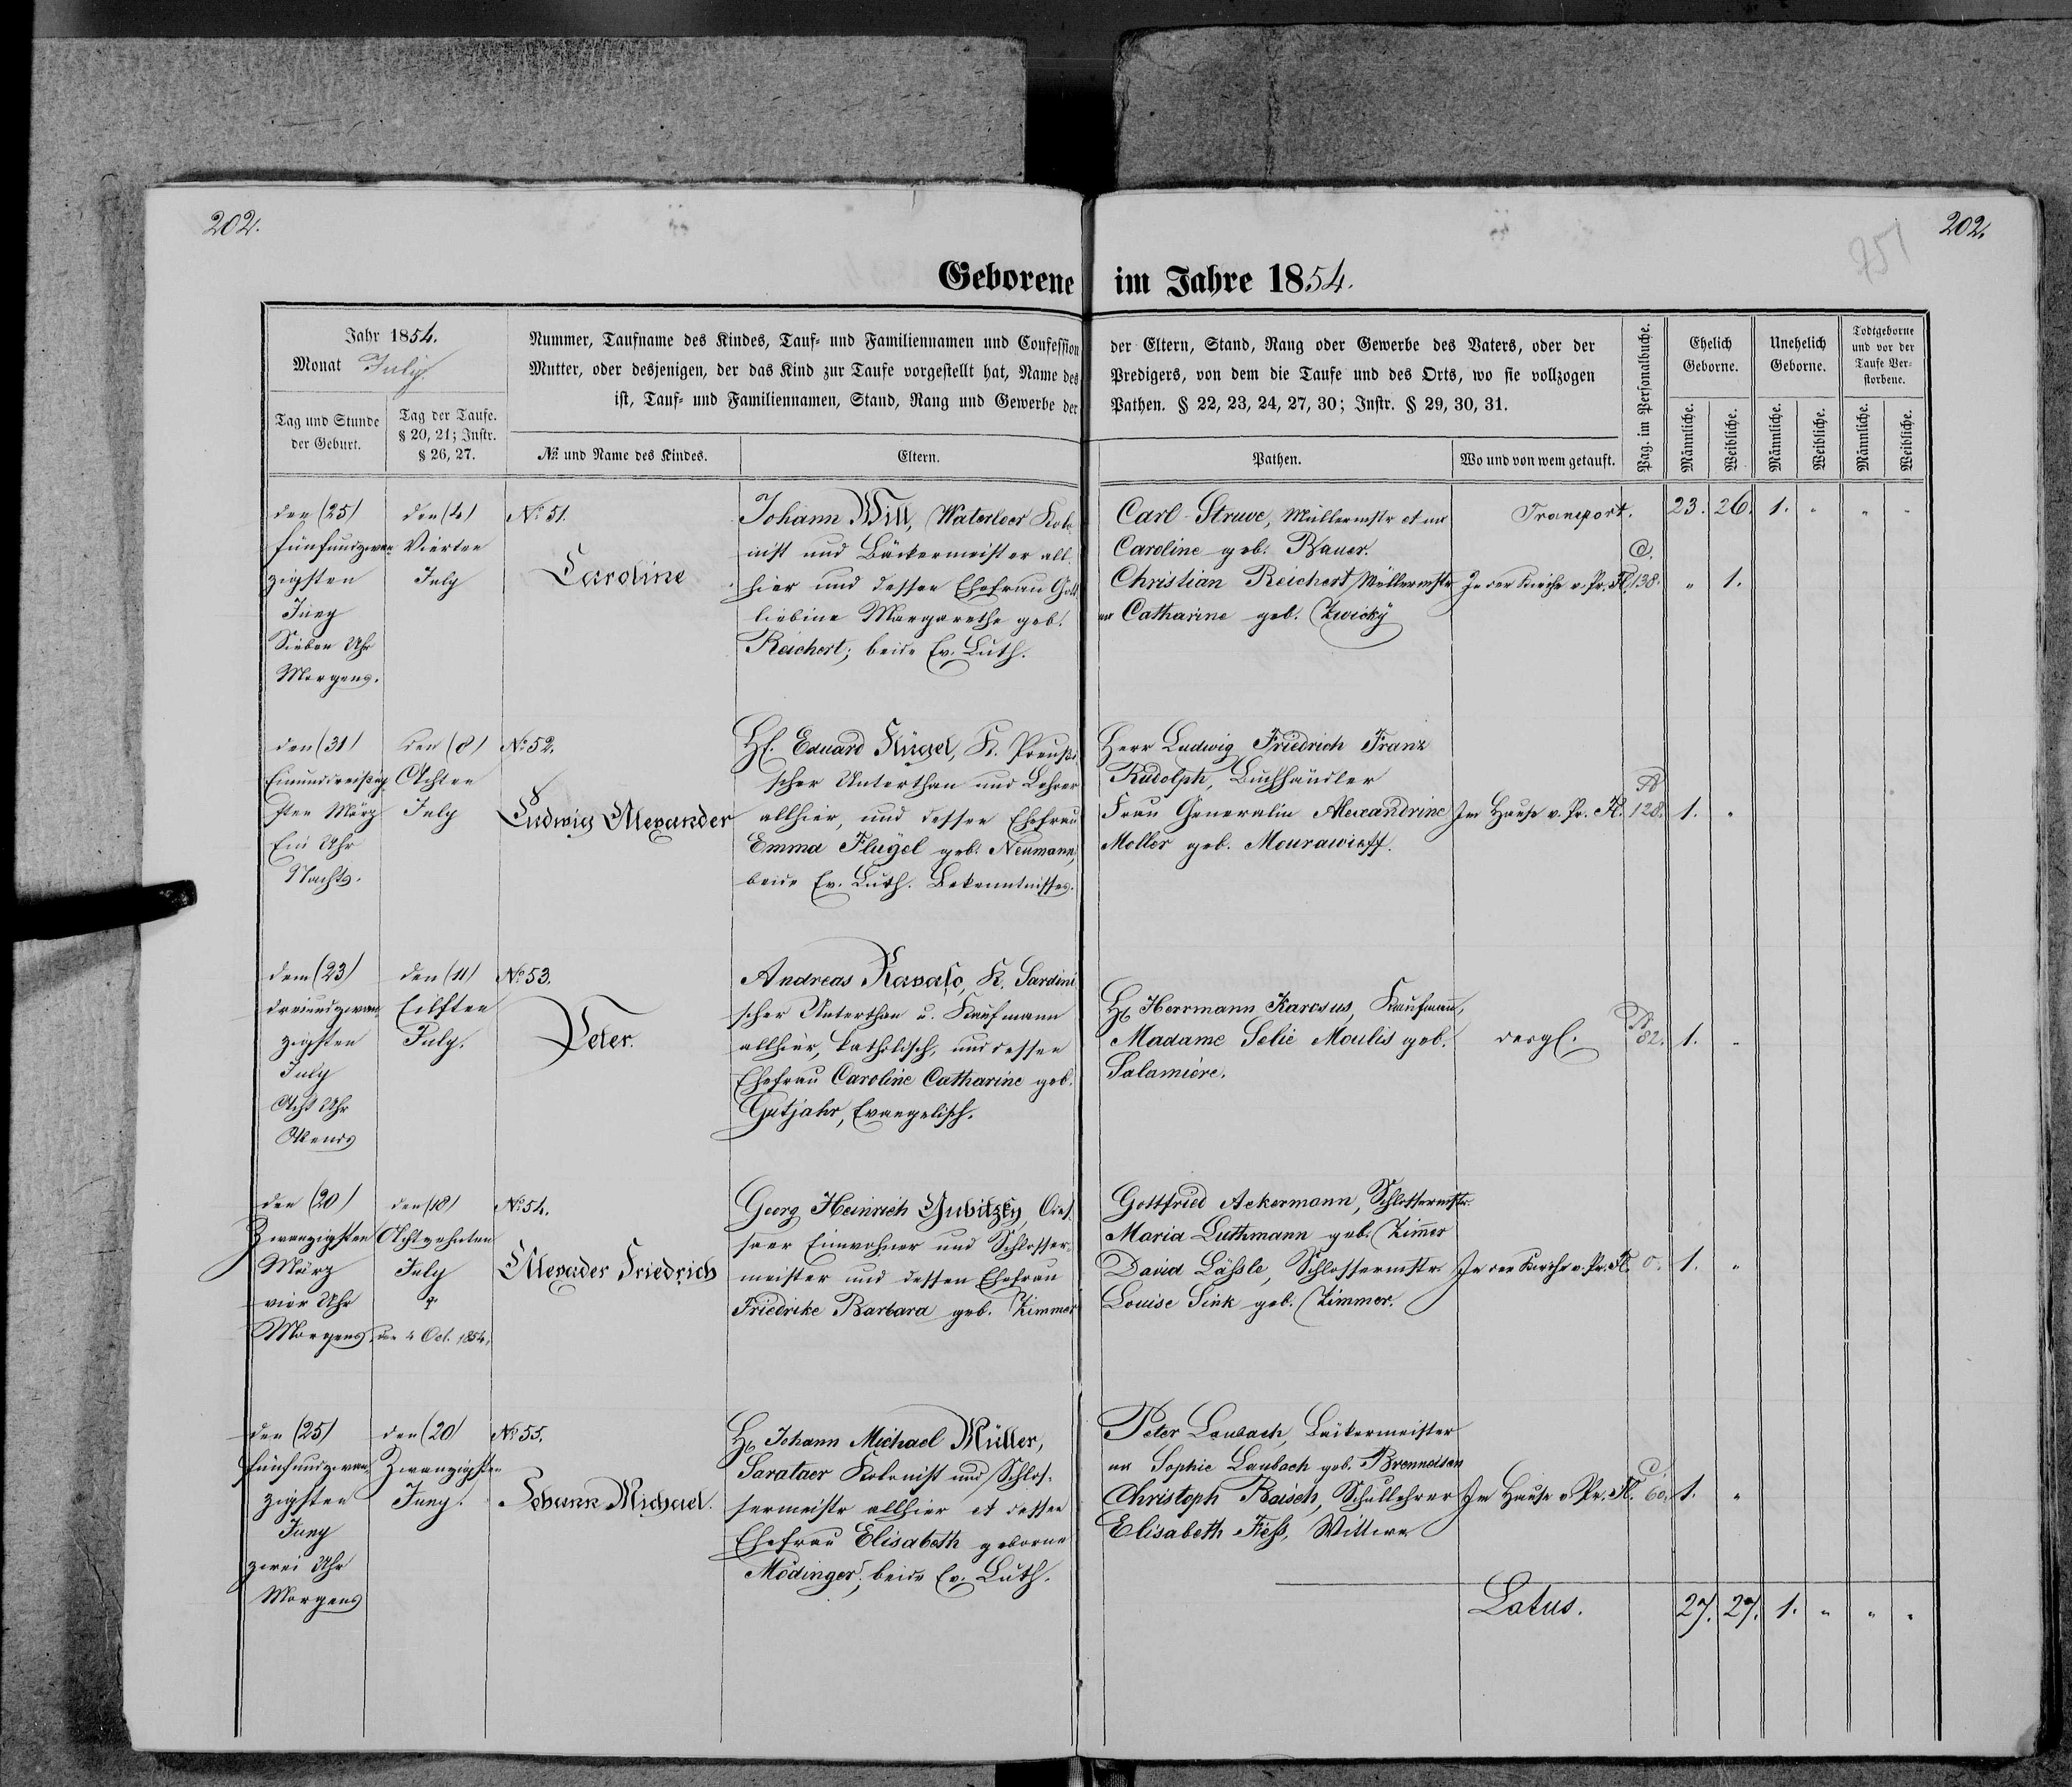 202.
202.
751
Geborene im Jahre 1854.
Jahr 1854.
Monat July.
Tag und Stunde der Geburt.
Tag der Taufe. § 20, 21; Instr. § 26, 27.
Nummer, Taufname des Kindes, Tauf- und Familiennamen und Confession der Eltern, Stand, Rang oder Gewerbe des Vaters, oder der
Mutter, oder desjenigen, der das Kind zur Taufe vorgestellt hat, Name des Predigers, von dem die Taufe und des Orts, wo sie vollzogen
ist, Tauf- und Familiennamen, Stand, Rang und Gewerbe der Pathen. § 22, 23, 24, 27, 30; Instr. § 29, 30, 31.
№ und Name des Kindes.
Eltern.
Pathen.
Wo und von wem getauft.
Pag. im Personalbuche.
Ehelich Geborne.
Unehelich Geborne.
Todtgeborne und vor der Taufe Verstorbene.
Männliche.
Weibliche.
Männliche.
Weibliche.
Männliche.
Weibliche.
den (25)
fünfundzwan
zigsten
Juny
Sieben Uhr
Morgens.
den (4)
Vierten
July
№ 51.
Caroline
Johann Will, Waterloer Kolo
nist und Bäckermeister all
hier und dessen Ehefrau Gott
liebine Margarethe geb.
Reichert; beide Ev. Luth.
Carl Struve, Müllermstr et ux
Caroline geb. Bauer.
Christian Reichert Müllermstr
ux Catharine geb. Zwicky
Transport. 23. 26. 1. " " "
In der Kirche v. Pr. Fl. C. 138. " 1.
den (31)
Einunddreißig
sten März
Ein Uhr
Nachts.
den (8)
Achten
July
№ 52.
Ludwig Alexander
H. Eduard Flügel, K. Preußi
scher Unterthan und Lehrer
allhier, und dessen Ehefrau
Emma Flügel geb. Neumann,
beide Ev. Luth. Bekenntnisses.
Herr Ludwig Friedrich Franz
Rudolph, Buchhändler
Frau Generalin Alexandrine
Moller geb. Mourawieff.
Im Hause v. Pr. Fl. A 128. 1. "
dem (23)
dreiundzwan
zigsten
July
Acht Uhr
Abends
den (11)
Eilften
July.
№ 53.
Peter.
Andreas K. Sardini
scher Unterthan u. Kaufmann
allhier, katholisch, und dessen
Ehefrau Caroline Catharine geb.
Gutjahr, Evangelisch.
H. Herrmann Kaufmann,
Madame Moulis geb.
Salamière.
desgl. 82. 1. "
den (20)
Zwanzigsten
März
vier Uhr
Morgens
den (18)
Achtzehnten
July
den 4 Oct. 1854.
№ 54.
Alexader Friedrich
Georg Heinrich Gubitzky, Odes
saer Einwohner und Schlosser-
meister und dessen Ehefrau
Friedrike Barbara geb. Zimmer
Gottfried Ackermann, Schlossermstr.
Maria Luthmann geb. Zimer
David Läßle, Schlossermstr.
Louise Sink geb. Zimmer.
In der Kirche v. Pr. Fl. 0. 1. "
den (25)
fünfundzwan
zigsten
Juny
zwei Uhr
Morgens
den (20)
Zwanzigsten
Juny.
№ 55.
Johann Michael.
H. Johann Michael Müller,
Sarataer Kolonist und Schlos-
sermeistr allhier et dessen
Ehefrau Elisabeth geborne
Mödinger; beide Ev. Luth.
Peter Laubach, Bäckermeister
ux Sophie Laubach geb. Brenneisen
Christoph Baisch, Schullehrer
Elisabeth Fieß, Wittwe
Im Hause v. Pr. Fl. C. 60. 1. "
Latus. 27. 27. 1. " " "